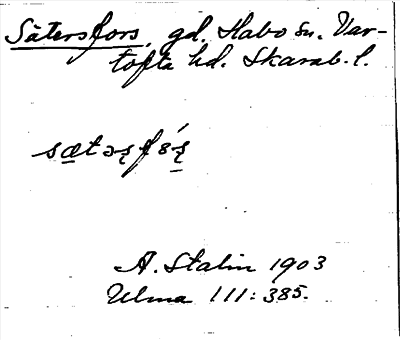 Sätersfors, gd. Habo sn. Var-
tofta hd. Skarab. l.
sætəʂfɵ́ʂ
A. Stalin 1903
Ulma 111:385.